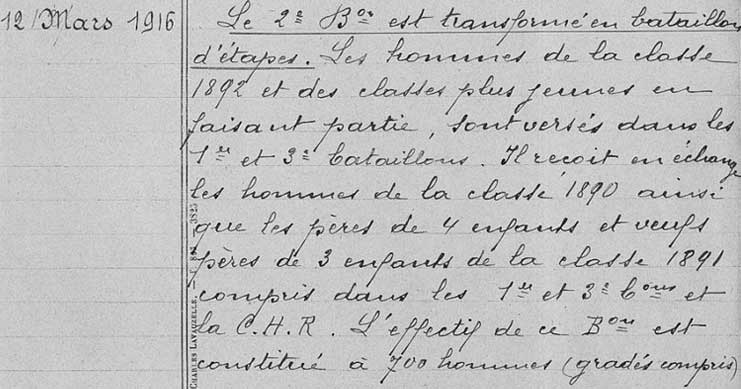 12 Mars 1916
Le 2e Bon est transformé en bataillon
d'étapes. Les hommes de la classe
1892 et des classes plus jeunes en
faisant partie, sont versés dans les
1er et 3e bataillons. Il reçoit en échange
les hommes de la classe 1890 ainsi
que les pères de 4 enfants et veufs
pères de 3 enfants de la classe 1891
compris dans les 1er et 3e bons et
la C.H.R. L'effectif de ce Bon est
constitué à 700 hommes (gradés compris)
CHARLES LAVAUZELLE.